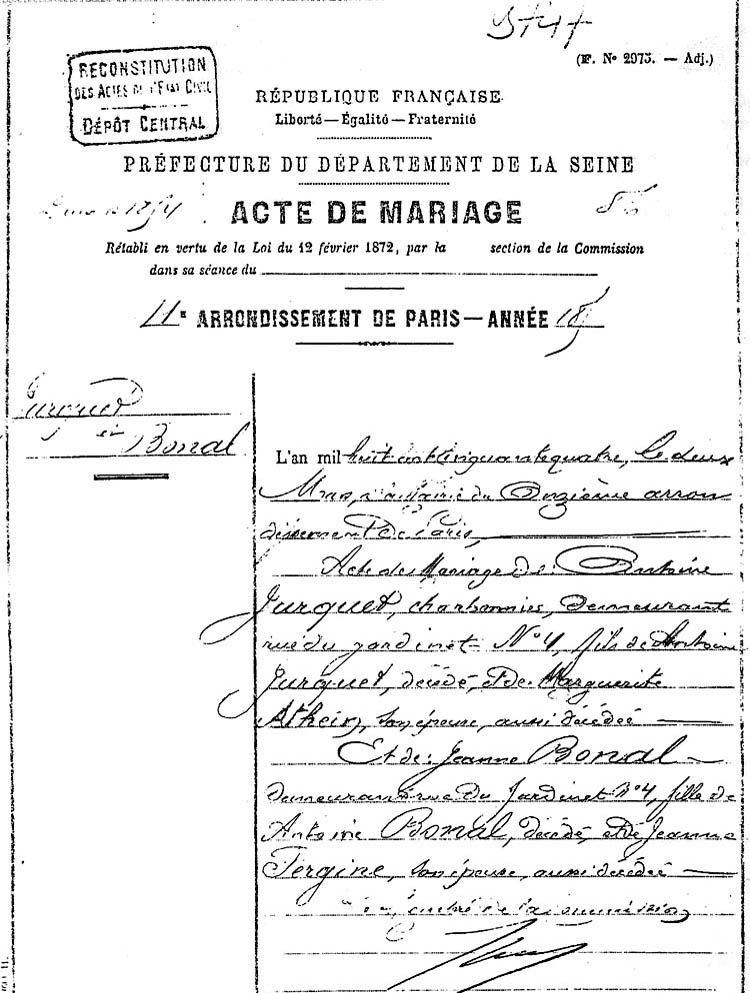 (F. N° 2973. — Adj.)
RECONSTITUTION
DES ACTES DE L'ETAT CIVIL
DÉPÔT CENTRAL
RÉPUBLIQUE FRANÇAISE
Liberté — Égalité — Fraternité
PRÉFECTURE DU DÉPARTEMENT DE LA SEINE
2 mars 1854
ACTE DE MARIAGE
Rétabli en vertu de la Loi du 12 février 1872, par la section de la Commission
dans sa séance du
11e ARRONDISSEMENT DE PARIS — ANNÉE 18
Jurquet
et
Bonal
L'an mil huit cent cinquante quatre, le deux
Mars, à la mairie du Onzième arron
dissement de Paris,
Acte de Mariage de: Antoine
Jurquet, charbonnier, demeurant
rue du jardinet N° 4, fils de Antoine
Jurquet, décédé, et de Marguerite
son épouse, aussi décédée
Et de: Jeanne Bonal
demeurant rue du Jardinet N° 4, fille de
Antoine Bonal, décédé, et de Jeanne
Fergine, son épouse, aussi décédée